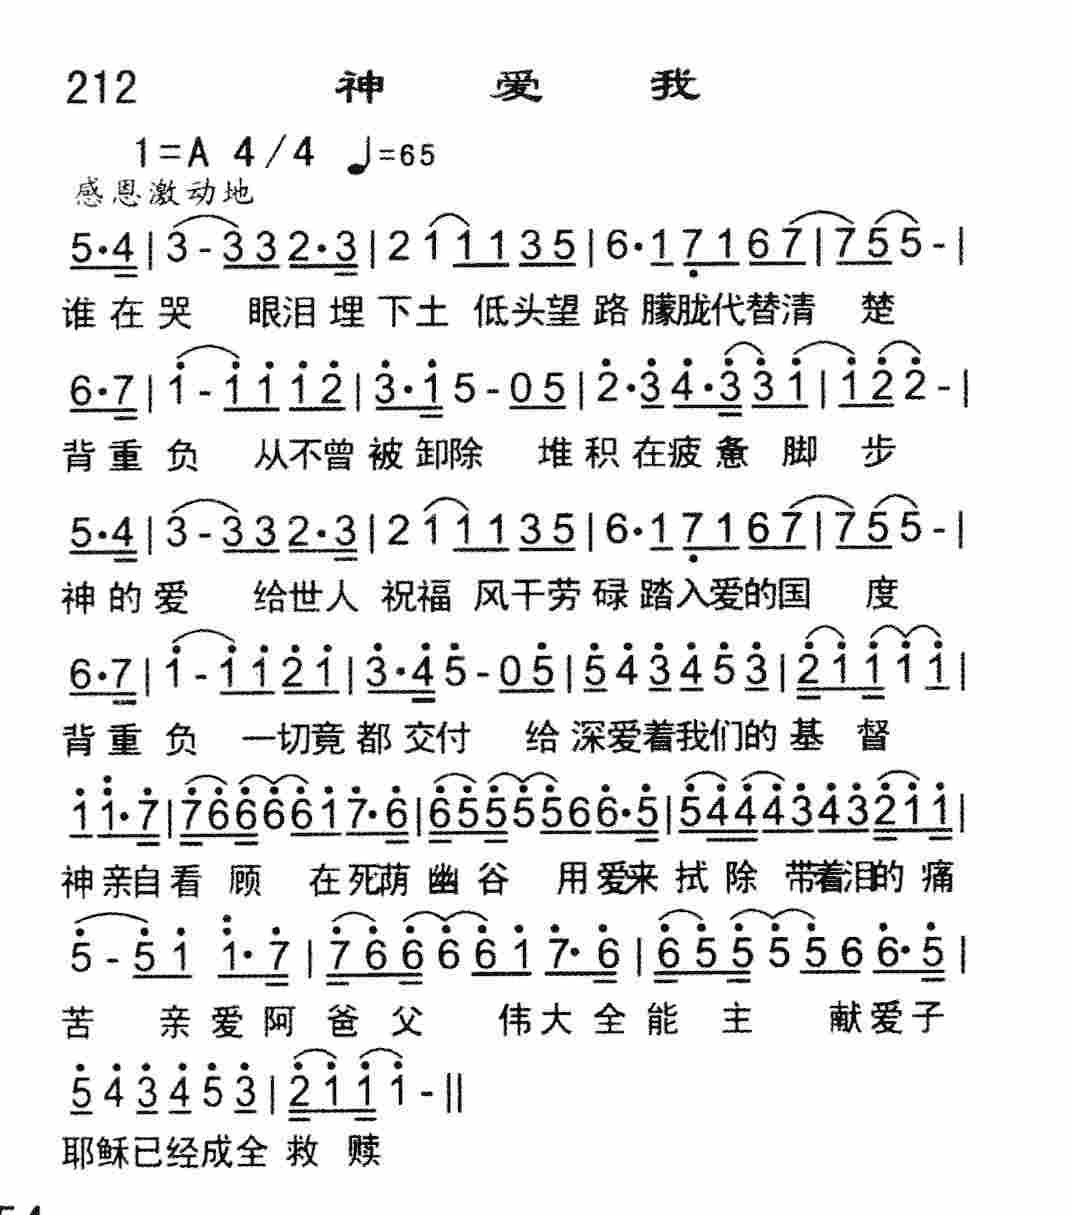 212 神 爱 我
1=A 4/4 ♩=65
感恩激动地
5·4|3-332·3|211135|6·17167|755-|
谁在哭 眼泪埋下土 低头望路朦胧代替清 楚
6·7|1-1112|3·15-05|2·34·331|122-|
背重负 从不曾被卸除 堆积在疲惫 脚 步
5·4|3-332·3|211135|6·17167|755-|
神的爱 给世人 祝福 风干劳碌踏入爱的国 度
6·7|1-1121|3·45-05|543453|21111|
背重负 一切竟都交付 给深爱着我们的基 督
11·7|7666617·6|6555566·5|54443432 11|
神亲自看 顾 在死荫幽谷 用爱来拭除 带着泪的痛
5-51 1·7|7666617·6|6555566·5|
苦 亲爱阿爸父 伟大全能 主 献爱子
543453|2111-||
耶稣已经成全救 赎